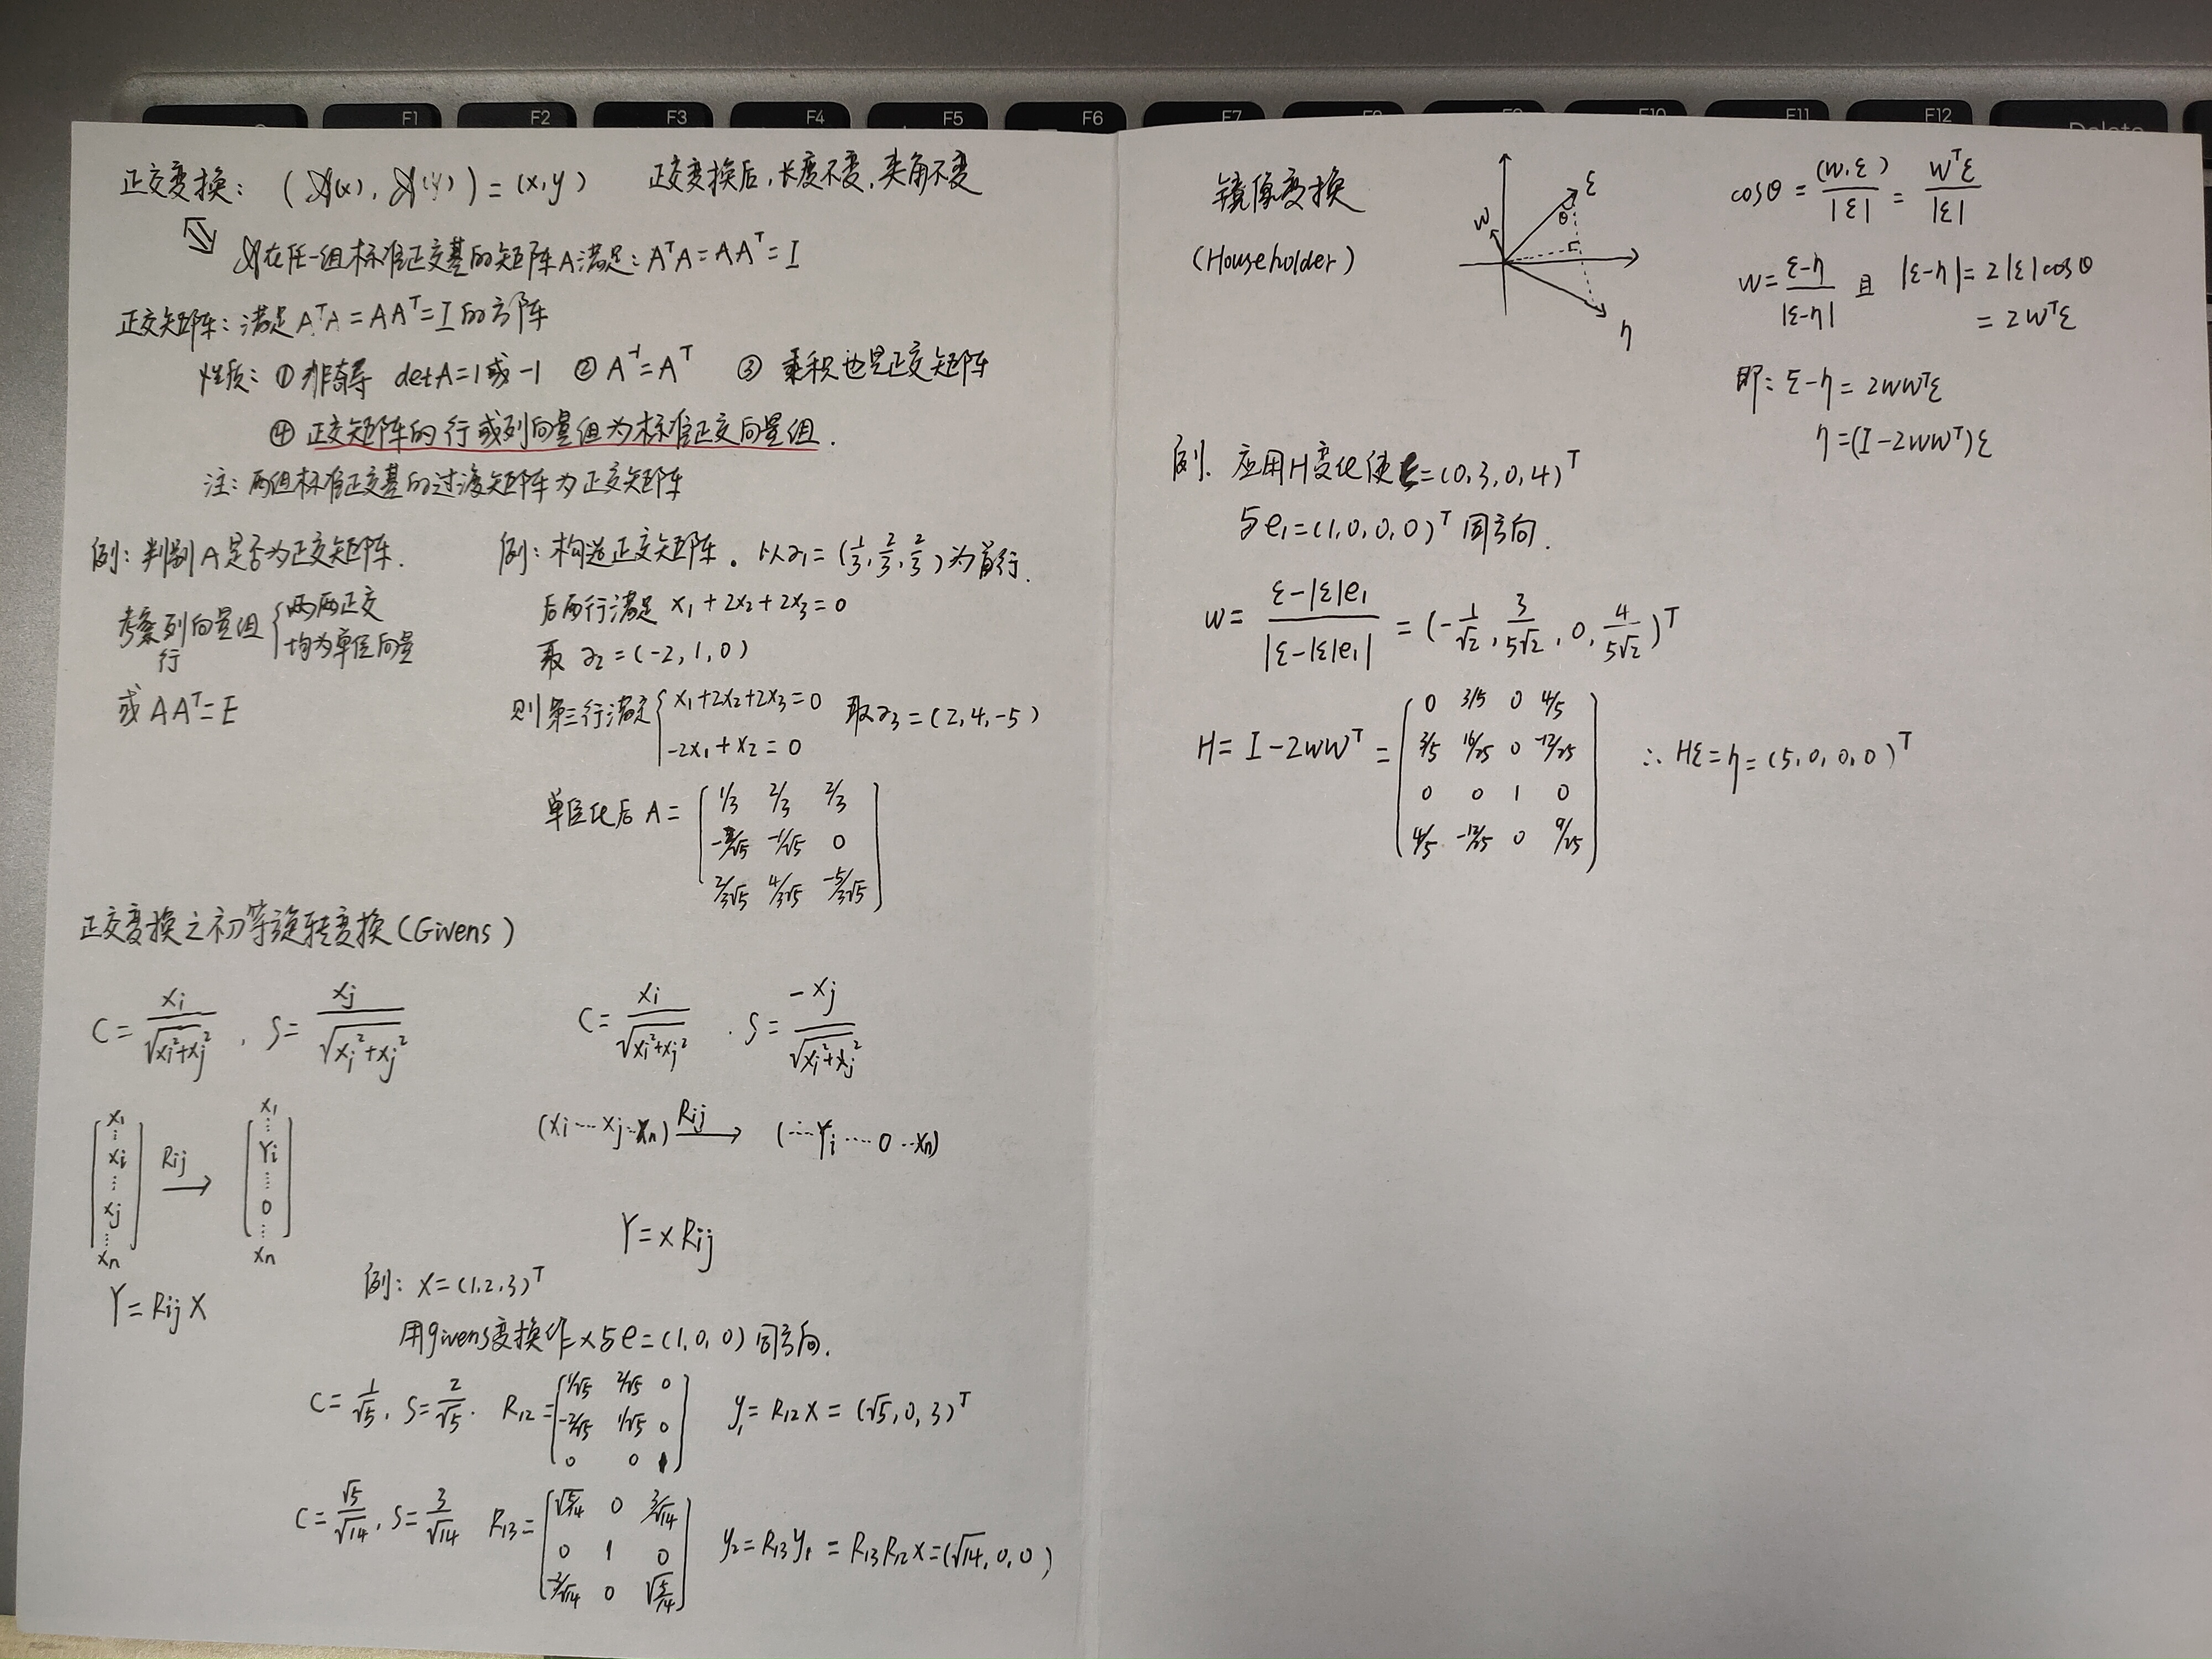 F1 F2 F3 F4 F5 F6 F7 F10 F11 F12 Delete
正交变换: (𝒜(x), 𝒜(y)) = (x,y) 正交变换后,长度不变,夹角不变
⇕ 𝒜在任一组标准正交基的矩阵A满足: AᵀA = AAᵀ = I
正交矩阵: 满足 AᵀA = AAᵀ = I 的方阵
性质: ① 非奇异 detA=1或-1 ② A⁻¹=Aᵀ ③ 乘积也是正交矩阵
④ 正交矩阵的行或列向量组为标准正交向量组.
注: 两组标准正交基的过渡矩阵为正交矩阵
例: 判别A是否为正交矩阵.
考察列向量组 { 两两正交
行 均为单位向量
或 AAᵀ=E
例: 构造正交矩阵. 以α₁ = (1/3, 2/3, 2/3) 为首行.
后两行满足 x₁+2x₂+2x₃=0
取 α₂=(-2,1,0)
则第三行满足 { x₁+2x₂+2x₃=0 取α₃=(2,4,-5)
-2x₁+x₂=0
单位化后 A =
1/3 2/3 2/3
-2/√5 -1/√5 0
2/3√5 4/3√5 -5/3√5
正交变换之初等旋转变换(Givens)
C = xi/√(xi²+xj²), S = xj/√(xi²+xj²)
[x₁ ⋮ xi ⋮ xj ⋮ xn] Rij → [x₁ ⋮ Yi ⋮ 0 ⋮ xn]
Y = Rij X
C = xi/√(xi²+xj²). S = -xj/√(xi²+xj²)
(xi … xj … xn) Rij → (… Yi … 0 … xn)
Y = x Rij
例: X=(1,2,3)ᵀ
用givens变换作x与e=(1,0,0)同方向.
C = 1/√5, S = 2/√5. R₁₂ =
1/√5 2/√5 0
-2/√5 1/√5 0
0 0 1
y₁ = R₁₂X = (√5,0,3)ᵀ
C = √5/√14, S = 3/√14 R₁₃ =
√5/14 0 3/√14
0 1 0
-3/√14 0 √5/14
y₂ = R₁₃y₁ = R₁₃R₁₂X = (√14,0,0)
镜像变换
(Householder)
w ξ θ η
cosθ = (w,ξ)/|ξ| = wᵀξ/|ξ|
w = ξ-η/|ξ-η| 且 |ξ-η| = 2|ξ|cosθ
= 2wᵀξ
即: ξ-η = 2wwᵀξ
η = (I-2wwᵀ)ξ
例. 应用H变化使ξ=(0,3,0,4)ᵀ
与e₁=(1,0,0,0)ᵀ 同方向.
w = ξ-|ξ|e₁/|ξ-|ξ|e₁| = (-1/√2, 3/5√2, 0, 4/5√2)ᵀ
H = I-2wwᵀ =
0 3/5 0 4/5
3/5 16/25 0 -12/25
0 0 1 0
4/5 -12/25 0 9/25
∴ Hξ = η = (5,0,0,0)ᵀ